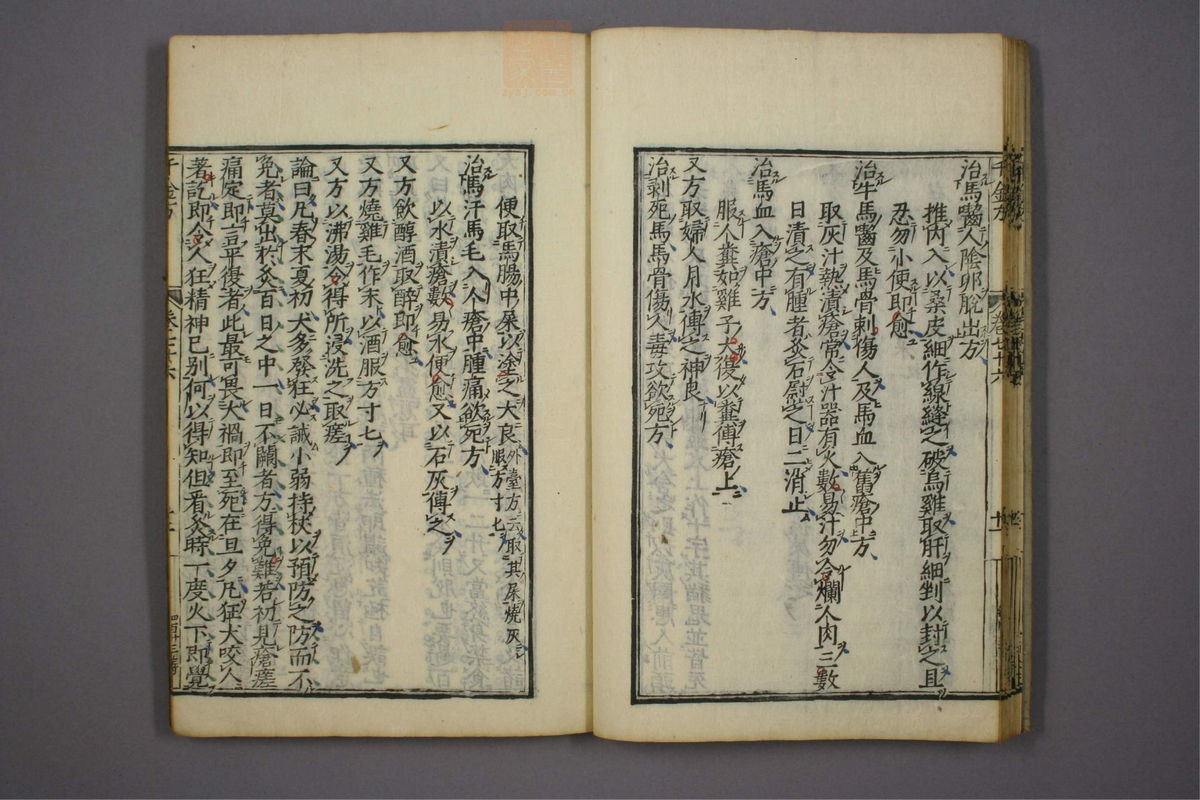 治馬嚙人陰卵脫出方
推內入以桑皮細作線縫之破烏雞取肝細剉以封之且
忍勿小便即愈
治牛馬嚙及馬骨刺傷人及馬血入舊瘡中方
取灰汁熱漬瘡常令汁器有火數易汁勿令爛人肉三數
日漬之有腫者炙石熨之日二消止
治馬血入瘡中方
服人糞如雞子大復以糞傅瘡上
又方取婦人月水傅之神良
治剥死馬馬骨傷人毒攻欲死方
便取馬腸中屎以塗之大良外臺方云取其屎燒灰
服方寸匕
治馬汗馬毛入人瘡中腫痛欲死方
以水漬瘡數易水便愈又以石灰傅之
又方飲醇酒取醉即愈
又方燒雞毛作末以酒服方寸匕
又方以沸湯令得所浸洗之取瘥
論曰凡春末夏初犬多發狂必誡小弱持杖以預防之防而不
免者莫出於灸百日之中一日不闕者方得免難若初見瘡瘥
痛定即言平復者此最可畏大禍即至死在旦夕凡狂犬咬人
著訖即令人狂精神已別何以得知但看灸時一度火下即覺